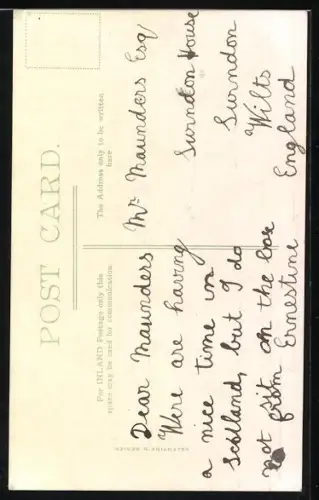 POST CARD.
For INLAND Postage only this
space may be used for communication
The Address only to be written
here
Dear Maunders
We're are having
a nice time in
scotland, but I do
not sit on the
from Ernestine
Mr Maunders Esq
Swindon House
Swindon
Wilts
England